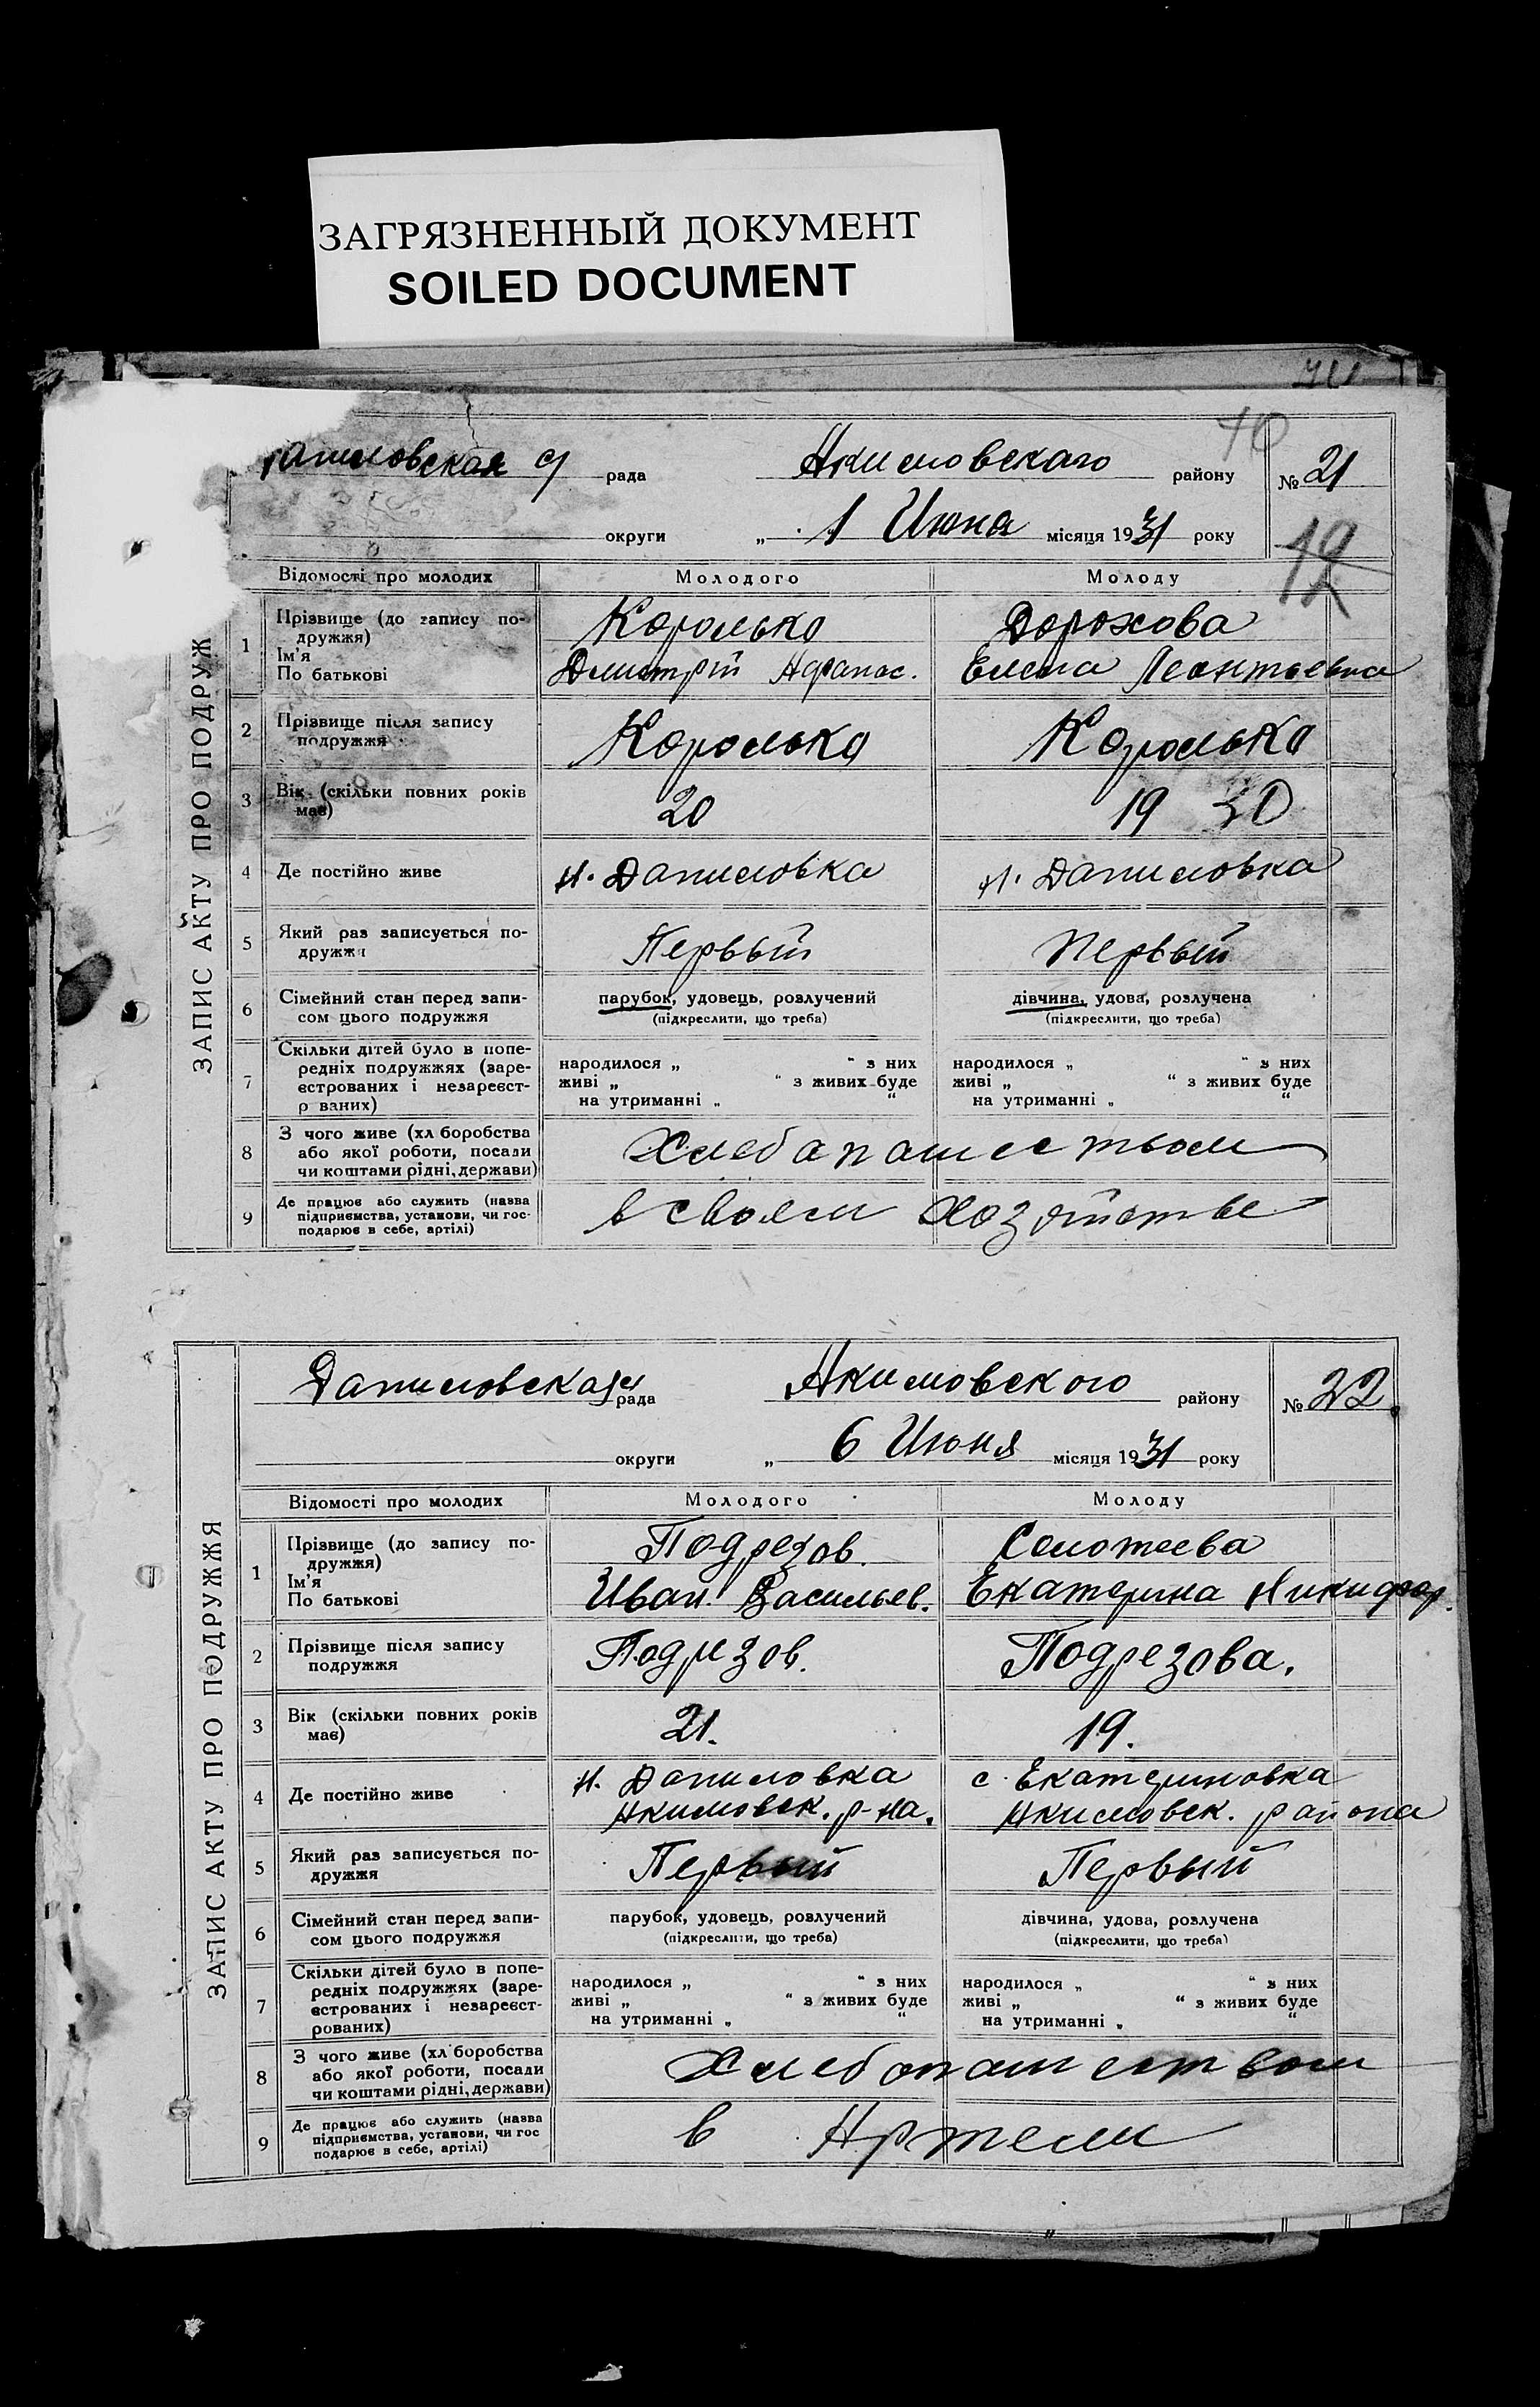 ЗАГРЯЗНЕННЫЙ ДОКУМЕНТ
SOILED DOCUMENT
70
ЗАПИС АКТУ ПРО ПОДРУЖ
аниловская с/ рада Акимовскаго району № 21
округи „ 1 Июня місяця 1931 року
19
Відомості про молодих Молодого Молоду
1 Прізвище (до запису подружжя) Королько Дорохова
Ім'я
По батькові Дмитрій Афанас. Елена Леонтьевна
2 Прізвище після запису подружжя Королько Королько
3 Вік (скільки повних років має) 20 19
4 Де постійно живе н. Даниловка н. Даниловка
5 Який раз записується подружжя Первый Первый
6 Сімейний стан перед записом цього подружжя парубок, удовець, розлучений дівчина, удова, розлучена
(підкреслити, що треба) (підкреслити, що треба)
7 Скільки дітей було в попередніх подружжях (зареєстрованих і незареєстр ваних)
народилося „ “ з них народилося „ “ з них
живі „ “ з живих буде живі „ “ з живих буде
на утриманні „ “ на утриманні „ “
8 З чого живе (хл боробства або якої роботи, посади чи коштами рідні, держави) Хлебапашеством
9 Де працює або служить (назва підприємства, установи, чи господарює в себе, артілі) в своем хозяйстве
ЗАПИС АКТУ ПРО ПОДРУЖЖЯ
Даниловская рада Акимовского району № 22.
округи „ 6 Июня місяця 1931 року
Відомості про молодих Молодого Молоду
1 Прізвище (до запису подружжя) Подрезов.
Ім'я
По батькові Иван Васильев. Екатерина Никифор.
2 Прізвище після запису подружжя Подрезов. Подрезова.
3 Вік (скільки повних років має) 21. 19.
4 Де постійно живе н. Даниловка с. Екатериновка
Акимовск. р-на. Акимовск. района
5 Який раз записується подружжя Первый Первый
6 Сімейний стан перед записом цього подружжя парубок, удовець, розлучений дівчина, удова, розлучена
(підкреслити, що треба) (підкреслити, що треба)
7 Скільки дітей було в попередніх подружжях (зареєстрованих і незареєстрованих)
народилося „ “ з них народилося „ “ з них
живі „ “ з живих буде живі „ “ з живих буде
на утриманні „ “ на утриманні „ “
8 З чого живе (хл боробства або якої роботи, посади чи коштами рідні, держави) Хлебопашеством
9 Де працює або служить (назва підприємства, установи, чи гос подарює в себе, артілі) в Артели